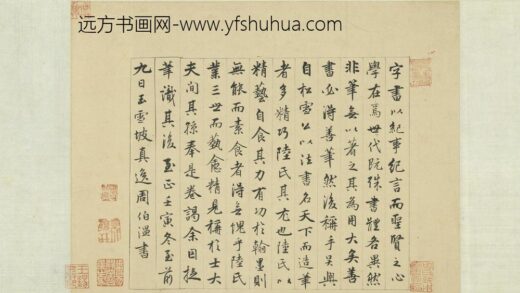 远方书画网-www.yfshuhua.com
字書以紀事紀言而聖賢之心
學在焉世代既殊書體各異然
非筆無以著之其為用大矣善
書必得善筆然後稱手吳興
自松雪公以法書名天下而造筆
者多精巧陸氏其尤也陸氏以
精藝自食其力有功於翰墨則
無能而素食者得無愧乎陸氏
業三世而藝愈精見稱於士大
夫間其孫奉是卷謁余因援
筆識其後至正壬寅冬至前
九日玉雪坡真逸周伯溫書